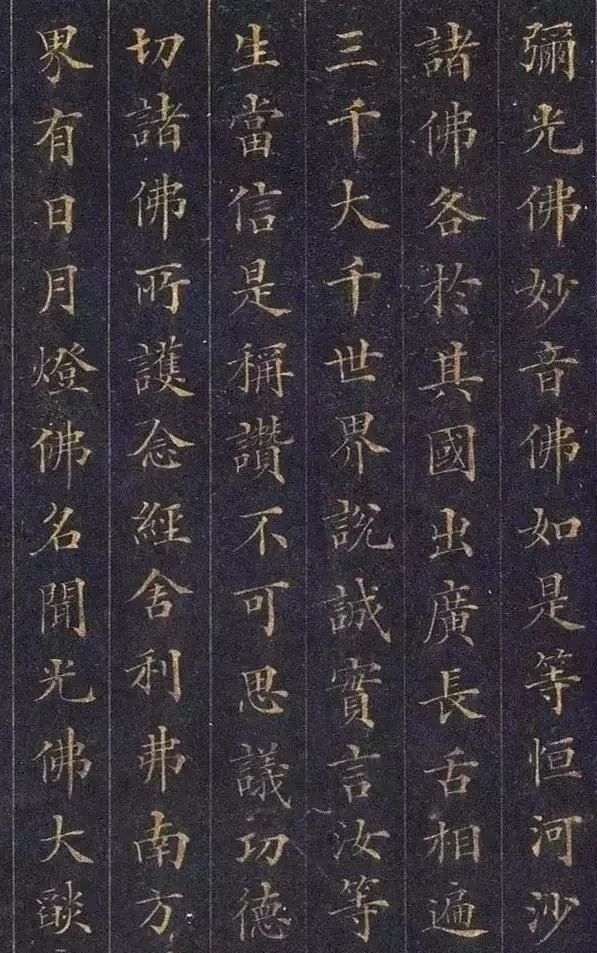 彌光佛妙音佛如是等恒河沙
諸佛各於其國出廣長舌相遍
三千大千世界說誠實言汝等
生當信是稱讚不可思議功德
切諸佛所護念經舍利弗南方
界有日月燈佛名聞光佛大燄